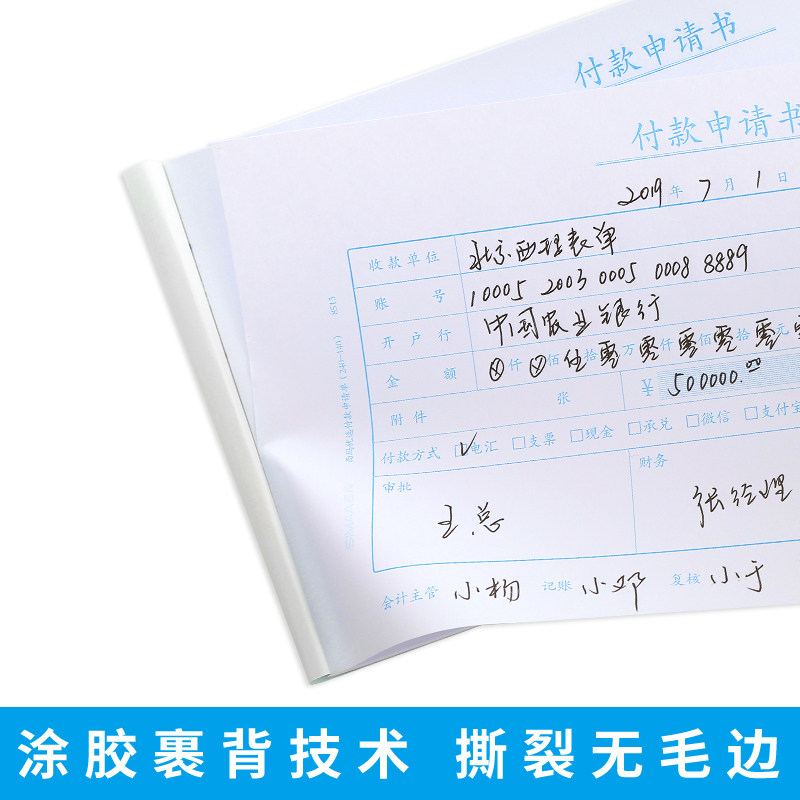 付款申请书
付款申请书
2019年7月1日
收款单位 北京西玛表单
账号 10005 2003 0005 0008 8889
开户行 中国农业银行
金额 ⊗仟⊗佰伍拾零万零仟零佰零拾零元
附件 张 ¥ 500000.00
付款方式 ☑电汇 □支票 □现金 □承兑 □微信 □支付宝
审批 财务
王总 张经理
会计主管 小杨 记账 小邓 复核 小于
8513
涂胶裹背技术 撕裂无毛边